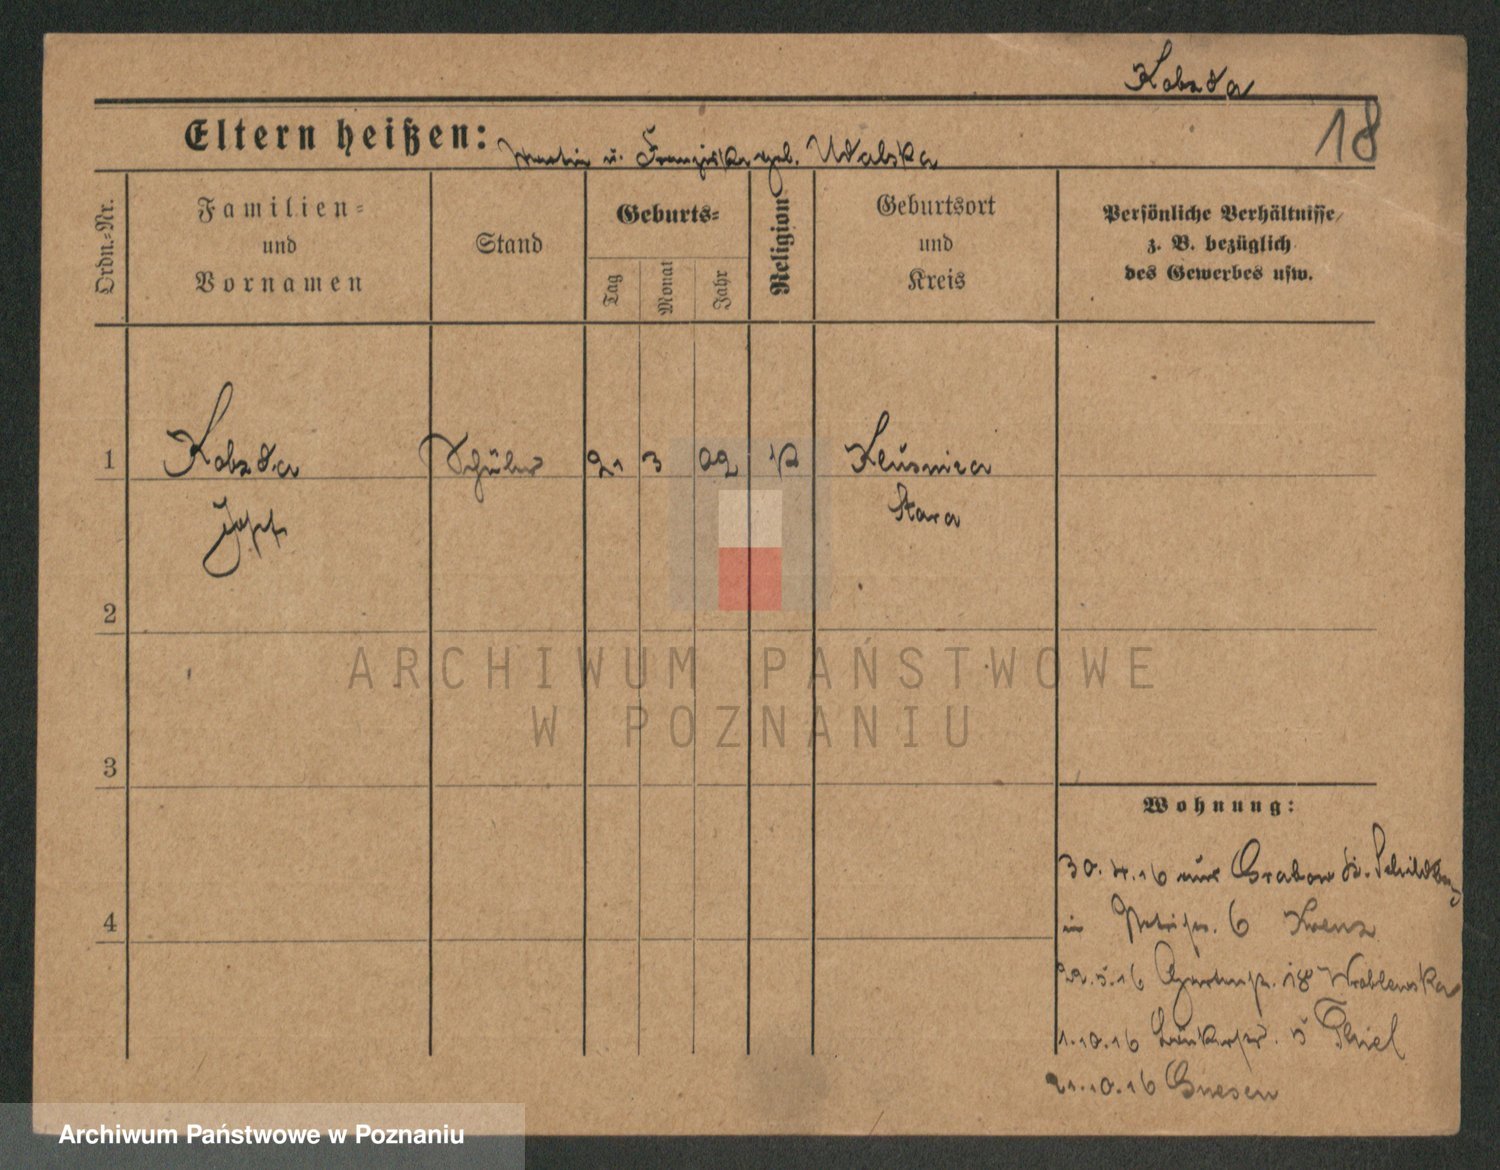 Kobzda
18
Eltern heißen: Martin u. Franziska geb. Udalska
Ordn.-Nr.
Familien-
und
Vornamen
Stand
Geburts-
Tag
Monat
Jahr
Religion
Geburtsort
und
Kreis
Persönliche Verhältnisse,
z. B. bezüglich
des Gewerbes usw.
1 Kobzda Schüler 21 3 02
Josef Stara
2
ARCHIWUM PAŃSTWOWE
W POZNANIU
3
Wohnung:
30.4.16 aus Grabow Kr. Schildberg
4
in 6
22.5.16 Gartenstr. 18 Wroblewska
1.10.16 5 Thiel
21.10.16 Gnesen
Archiwum Państwowe w Poznaniu